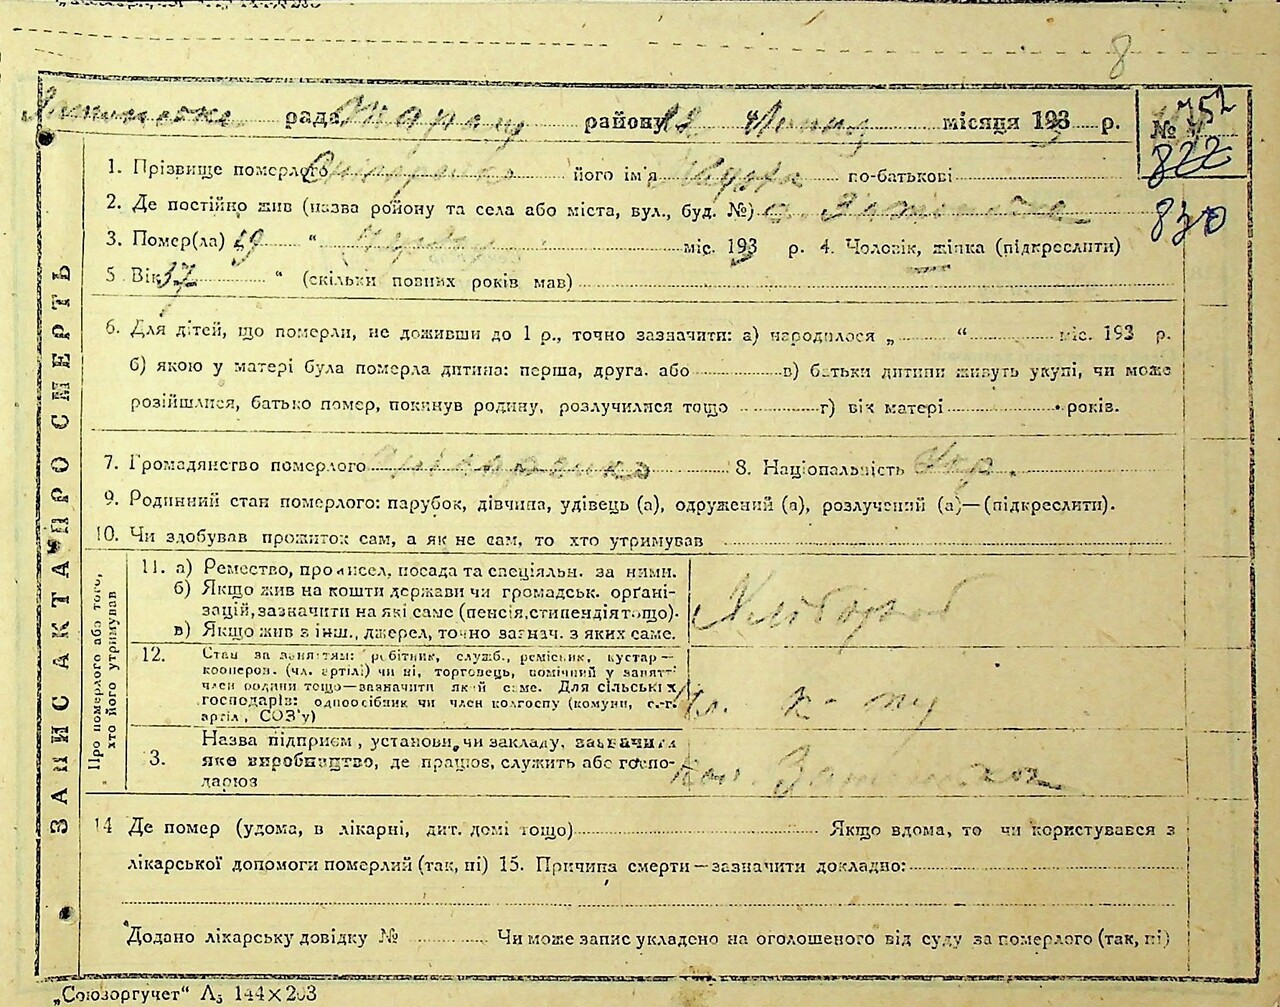 8
рада Таращ району 22 Липня місяця 1933 р.
№
752
822
830
1. Прізвище померлого його ім'я по-батькові
2. Де постійно жив (назва району та села або міста, вул., буд. №) с.
3. Помер(ла) 19 " міс. 193 р. 4. Чоловік, жінка (підкреслити)
5 Вік 37 " (скільки повних років мав)
6. Для дітей, що померли, не доживши до 1 р., точно зазначити: а) народилося „ " міс. 193 р.
б) якою у матері була померла дитина: перша, друга. або в) батьки дитини живуть укупі, чи може
розійшлися, батько помер, покинув родину, розлучилися тощо г) вік матері років.
7. Громадянство померлого 8. Національність Укр.
9. Родинний стан померлого: парубок, дівчина, удівець (а), одружений (а), розлучений (а)—(підкреслити).
10. Чи здобував прожиток сам, а як не сам, то хто утримував
ЗАПИС АКТА ПРО СМЕРТЬ
Про померлого або того,
хто його утримував
11. а) Ремество, промисел, посада та спеціяльн. за ними.
б) Якщо жив на кошти держави чи громадськ. орґані-
зацій, зазначити на які саме (пенсія, стипендія тощо).
в) Якщо жив з інш., джерел, точно зазнач. з яких саме.
Хлібороб
12. Стан за заняттям: робітник, служб., ремісник, кустар—
кооперов. (чл. артілі) чи ні, торговець, помічний у занятті
член родини тощо—зазначити який саме. Для сільських
господарів: одноосібник чи член колгоспу (комуни, с.-г.
артіл, СОЗ'у)
Чл. к-пу
3. Назва підприєм, установи, чи закладу, зазначити
яке виробництво, де працює, служить або госпо-
дарює
14 Де помер (удома, в лікарні, дит. домі тощо) Якщо вдома, то чи користувався з
лікарської допомоги померлий (так, ні) 15. Причина смерти—зазначити докладно:
Додано лікарську довідку № Чи може запис укладено на оголошеного від суду за померлого (так, ні)
„Союзоргучет" А5 144×203